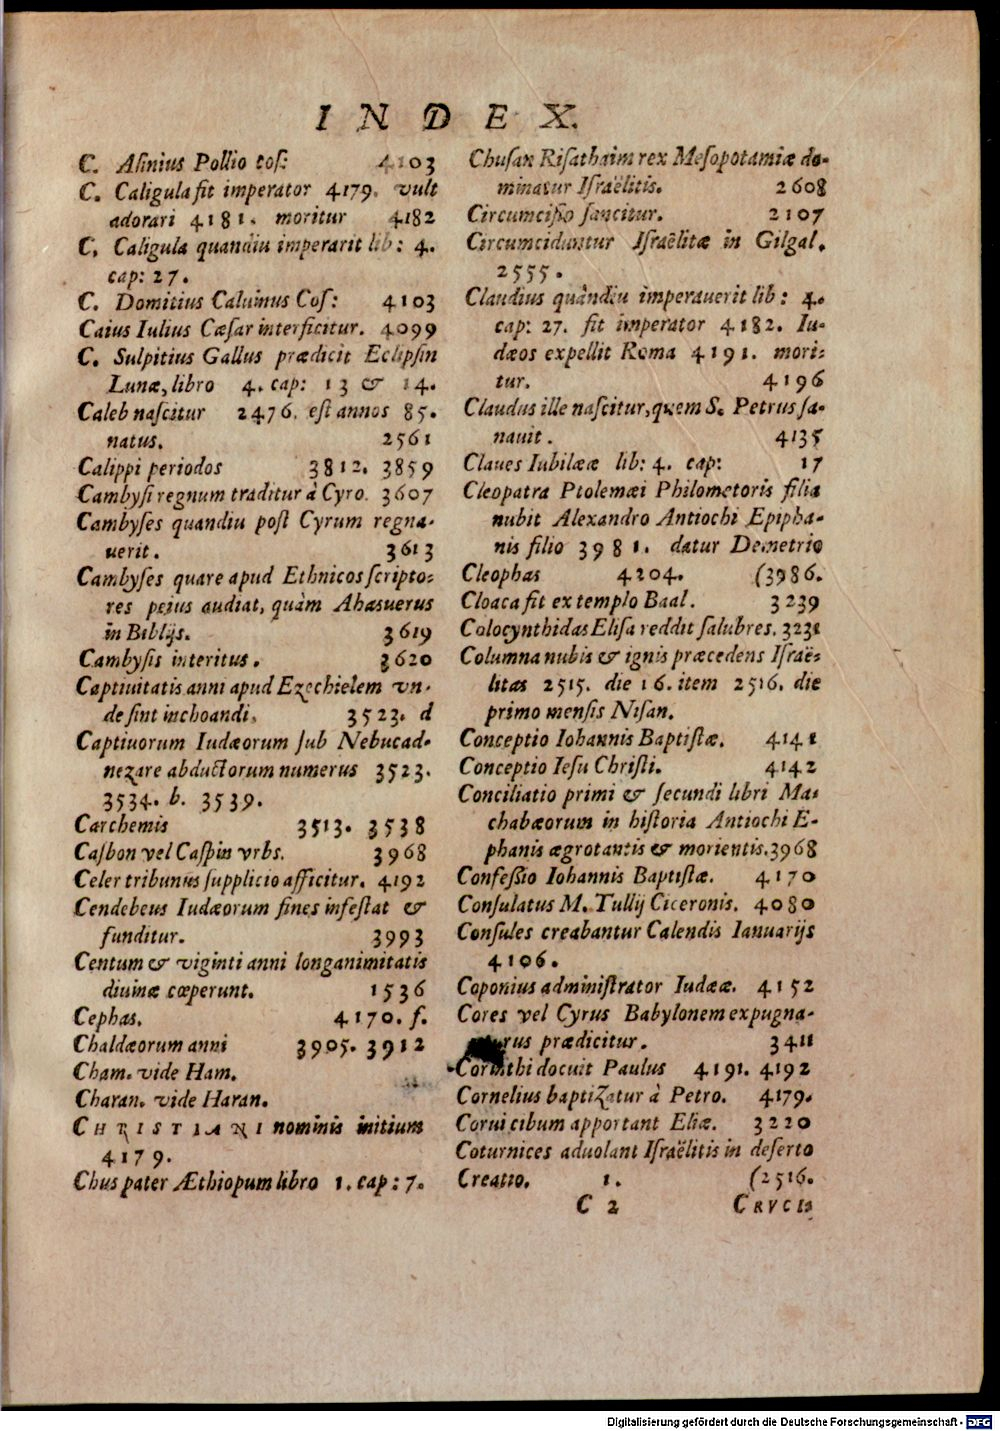 INDEX.
C. Asinius Pollio cos: 4103
C. Caligula fit imperator 4179. vult
adorari 4181. moritur 4182
C. Caligula quandiu imperarit lib: 4.
cap: 27.
C. Domitius Caluinus Cos: 4103
Caius Iulius Cæsar interficitur. 4099
C. Sulpitius Gallus prædicit Eclipsin
Lunæ, libro 4. cap: 13 & 14.
Caleb nascitur 2476. est annos 85.
natus. 2561
Calippi periodos 3812. 3859
Cambysi regnum traditur à Cyro. 3607
Cambyses quandiu post Cyrum regna-
uerit. 3613
Cambyses quare apud Ethnicos scripto-
res peius audiat, quàm Ahasuerus
in Biblijs. 3619
Cambysis interitus. 3620
Captiuitatis anni apud Ezechielem vn-
de sint inchoandi. 3523. d
Captiuorum Iudæorum sub Nebucad-
nezare abductorum numerus 3523.
3534. b. 3539.
Carchemis 3513. 3538
Casbon vel Caspin vrbs. 3968
Celer tribunus supplicio afficitur. 4192
Cendebeus Iudæorum fines infestat &
funditur. 3993
Centum & viginti anni longanimitatis
diuinæ cœperunt. 1536
Cephas. 4170. f.
Chaldæorum anni 3905. 3912
Cham. vide Ham.
Charan. vide Haran.
CHRISTIANI nominis initium
4179.
Chus pater Æthiopum libro 1. cap: 7.
Chusan Risathaim rex Mesopotamiæ do-
minatur Israëlitis. 2608
Circumcisio sancitur. 2107
Circumciduntur Israëlitæ in Gilgal.
2555.
Claudius quàndiu imperauerit lib: 4.
cap: 27. fit imperator 4182. Iu-
dæos expellit Roma 4191. mori-
tur. 4196
Claudus ille nascitur, quem S. Petrus sa-
nauit. 4135
Claues Iubilææ lib: 4. cap: 17
Cleopatra Ptolemæi Philometoris filia
nubit Alexandro Antiochi Epipha-
nis filio 3981. datur Demetrio
Cleophas 4204. (3986.
Cloaca fit ex templo Baal. 3239
Colocynthidas Elisa reddit salubres. 3231
Columna nubis & ignis præcedens Israë-
litas 2515. die 16. item 2516. die
primo mensis Nisan.
Conceptio Iohannis Baptistæ. 4141
Conceptio Iesu Christi. 4142
Conciliatio primi & secundi libri Ma-
chabæorum in historia Antiochi E-
phanis ægrotantis & morientis. 3968
Confessio Iohannis Baptistæ. 4170
Consulatus M. Tullij Ciceronis. 4080
Consules creabantur Calendis Ianuarijs
4106.
Coponius administrator Iudææ. 4152
Cores vel Cyrus Babylonem expugna-
rus prædicitur. 3411
Corinthi docuit Paulus 4191. 4192
Cornelius baptizatur à Petro. 4179.
Corui cibum apportant Eliæ. 3220
Coturnices aduolant Israëlitis in deserto
Creatio. 1. (2516.
C 2 CRVCIS
Digitalisierung gefördert durch die Deutsche Forschungsgemeinschaft - DFG